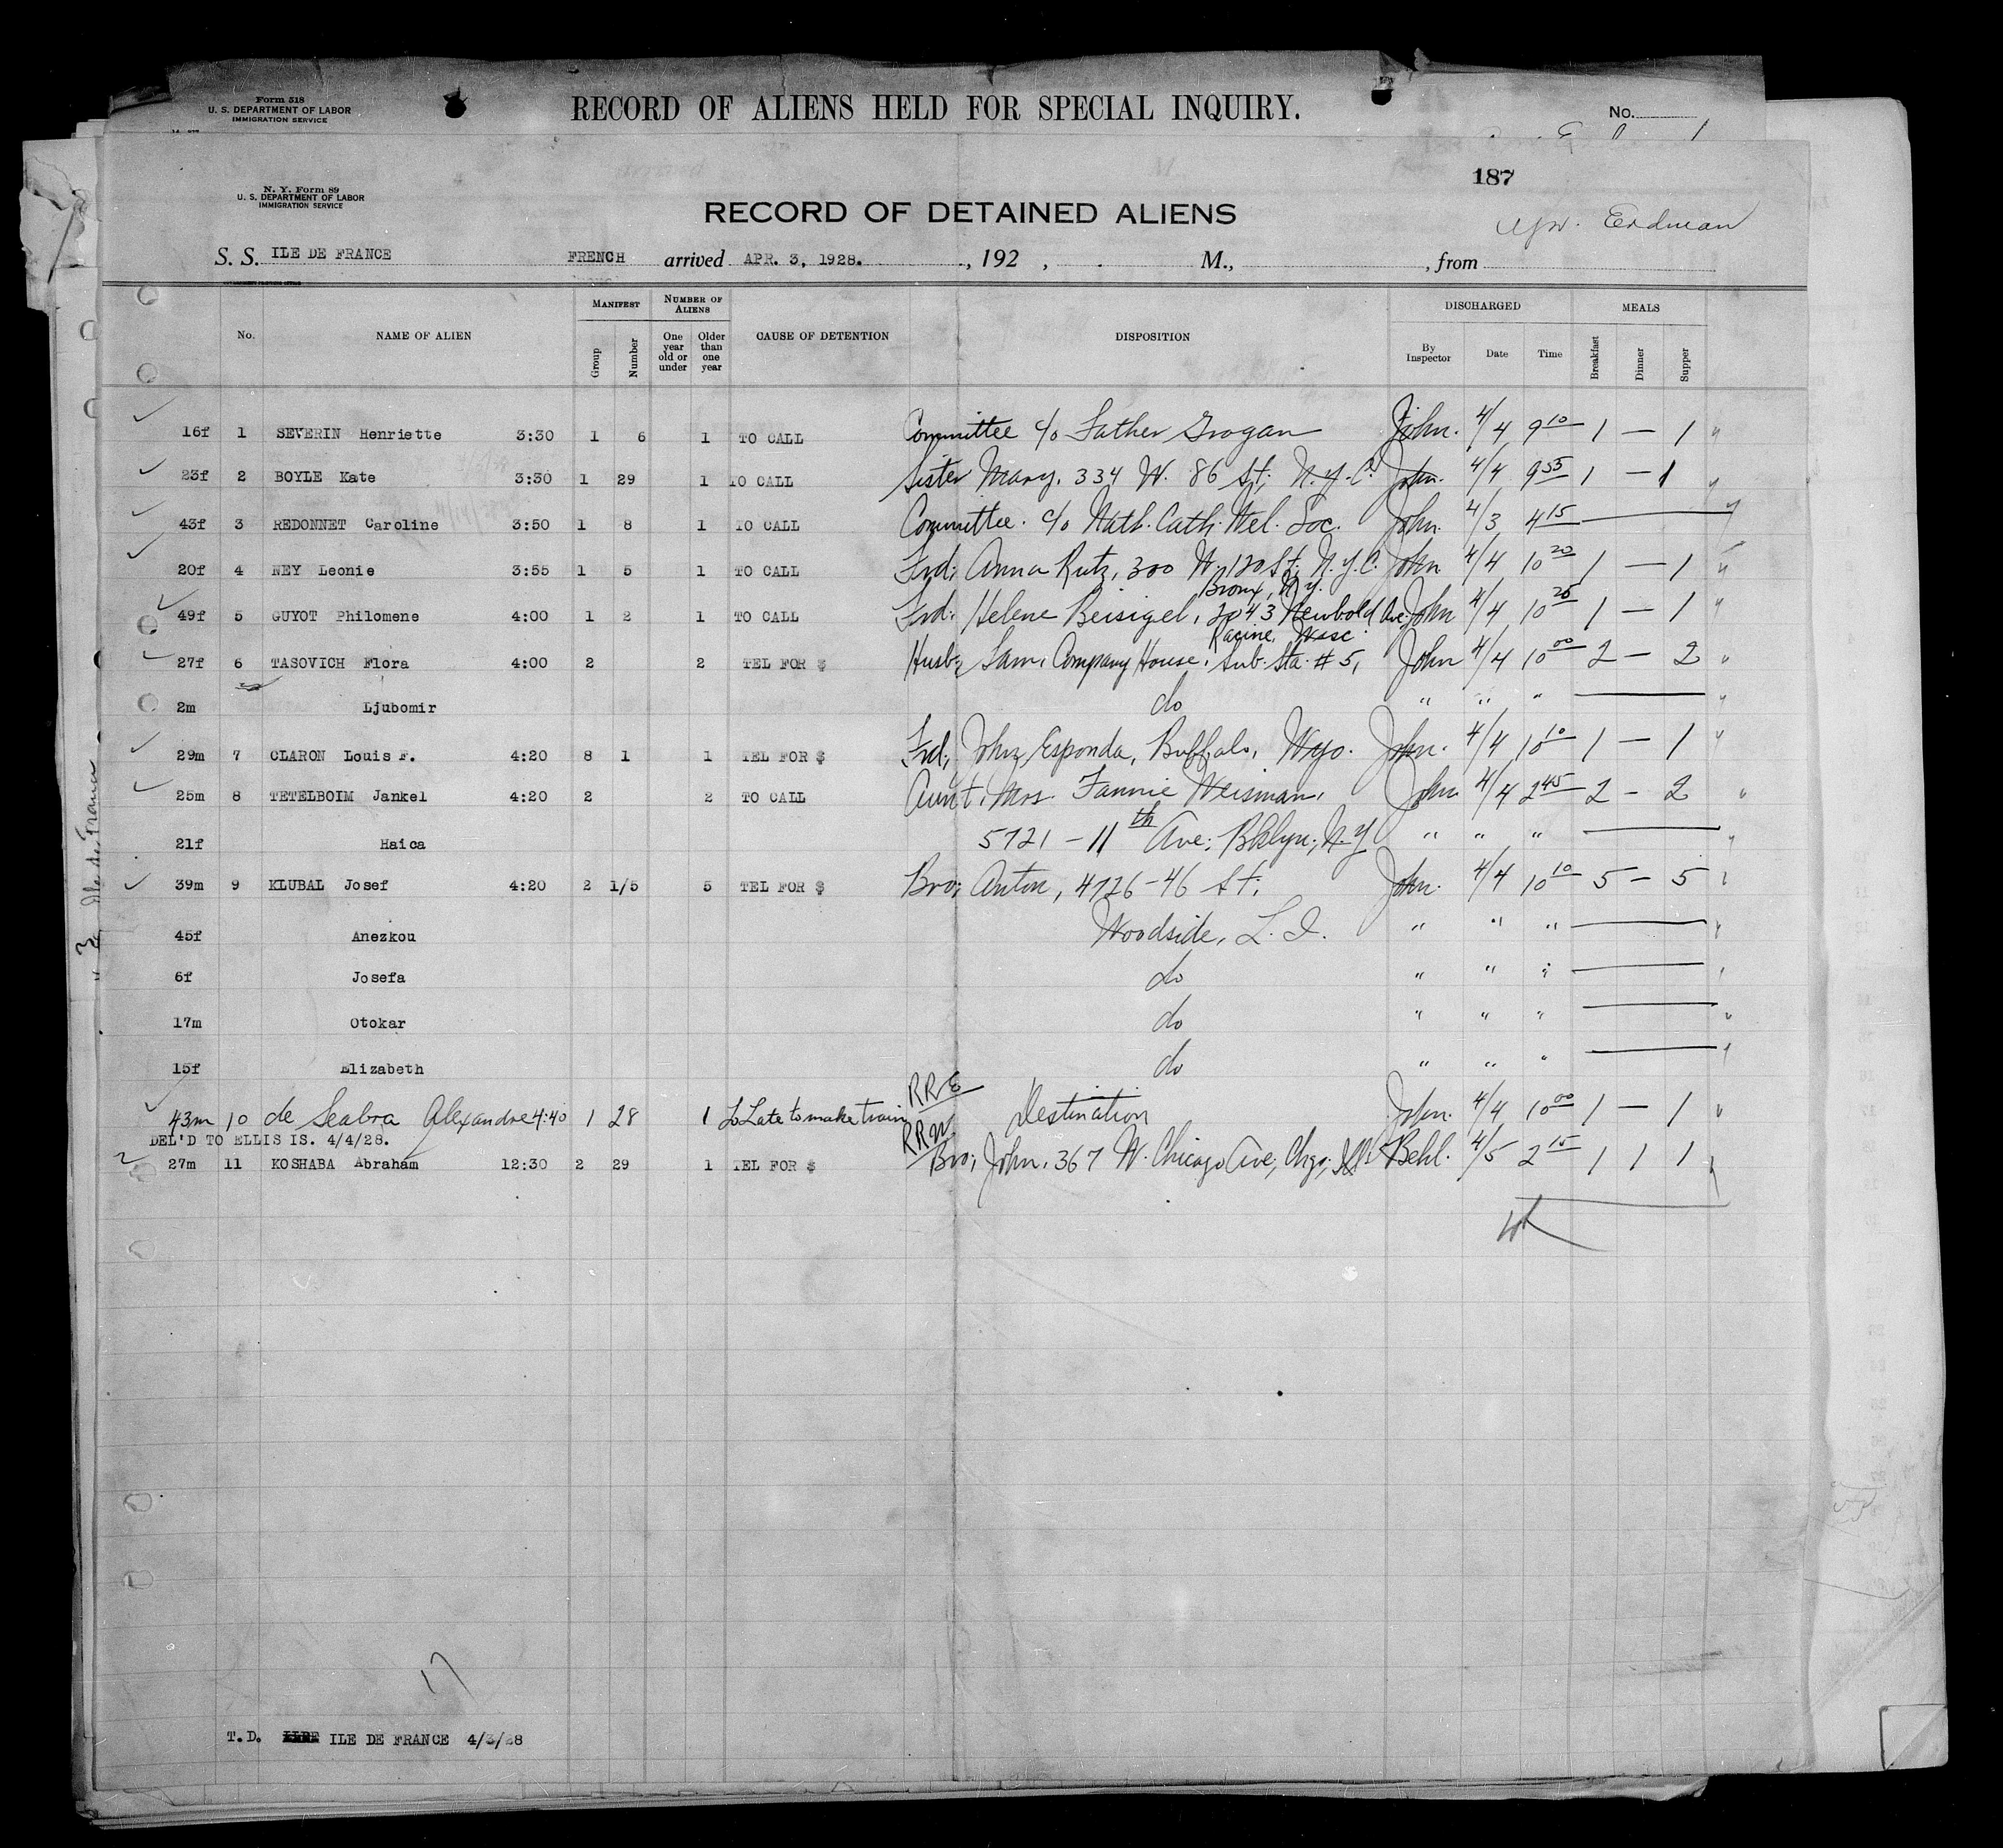 Form 518
U. S. DEPARTMENT OF LABOR
IMMIGRATION SERVICE
RECORD OF ALIENS HELD FOR SPECIAL INQUIRY.
No.
187
N. Y. Form 89
U. S. DEPARTMENT OF LABOR
IMMIGRATION SERVICE
RECORD OF DETAINED ALIENS
Erdman
S. S. ILE DE FRANCE FRENCH arrived APR. 3, 1928. , 192 , M., , from
No. NAME OF ALIEN MANIFEST Group Number NUMBER OF ALIENS One year old or under Older than one year CAUSE OF DETENTION DISPOSITION DISCHARGED By Inspector Date Time MEALS Breakfast Dinner Supper
16f 1 SEVERIN Henriette 3:30 1 6 1 TO CALL Committee c/o Father Grogan John. 4/4 9 10 1 — 1 "
23f 2 BOYLE Kate 3:30 1 29 1 TO CALL Sister Mary. 334 W. 86 St; N.Y.C. John. 4/4 9 55 1 — 1 "
43f 3 REDONNET Caroline 3:50 1 8 1 TO CALL Committee. c/o Natl. Cath. Wel. Soc. John. 4/3 4 15 — "
20f 4 NEY Leonie 3:55 1 5 1 TO CALL Frd; Anna Rutz, 300 W. 120 St; N.Y.C. John 4/4 10 20 1 — 1 "
Bronx, N.Y.
49f 5 GUYOT Philomene 4:00 1 2 1 TO CALL Frd: Helene Beisigel, 2043 Newbold Ave. John 4/4 10 25 1 — 1 "
Racine, Wisc.
27f 6 TASOVICH Flora 4:00 2 2 TEL FOR $ Husb; Sam, Company House, Sub. Sta. # 5, John 4/4 10 00 2 — 2 "
2m Ljubomir do " " " — "
29m 7 CLARON Louis F. 4:20 8 1 1 TEL FOR $ Frd; John Esponda, Buffalo, Wyo. John. 4/4 10 10 1 — 1 "
25m 8 TETELBOIM Jankel 4:20 2 2 TO CALL Aunt, Mrs. Fannie Weisman, John 4/4 2 45 2 - 2 "
21f Haica 5721 - 11th Ave; Bklyn; N.Y. " " " — "
39m 9 KLUBAL Josef 4:20 2 1/5 5 TEL FOR $ Bro; Anton, 4726 - 46 St; John. 4/4 10 10 5 — 5 "
45f Anezkou Woodside, L. I. " " " — "
6f Josefa do " " " — "
17m Otokar do " " " — "
15f Elizabeth do " " " — "
43m 10 de Seabra Alexandre 4:40 1 28 1 To Late to make train RR Destination John. 4/4 10 00 1 — 1 "
DEL'D TO ELLIS IS. 4/4/28.
27m 11 KOSHABA Abraham 12:30 2 29 1 TEL FOR $ RR Bro; John, 367 W. Chicago Ave; Chgo; Ill. Behl. 4/5 2 15 1 1 1
17
T.D. ILE DE FRANCE 4/3/28
3 Ile de France